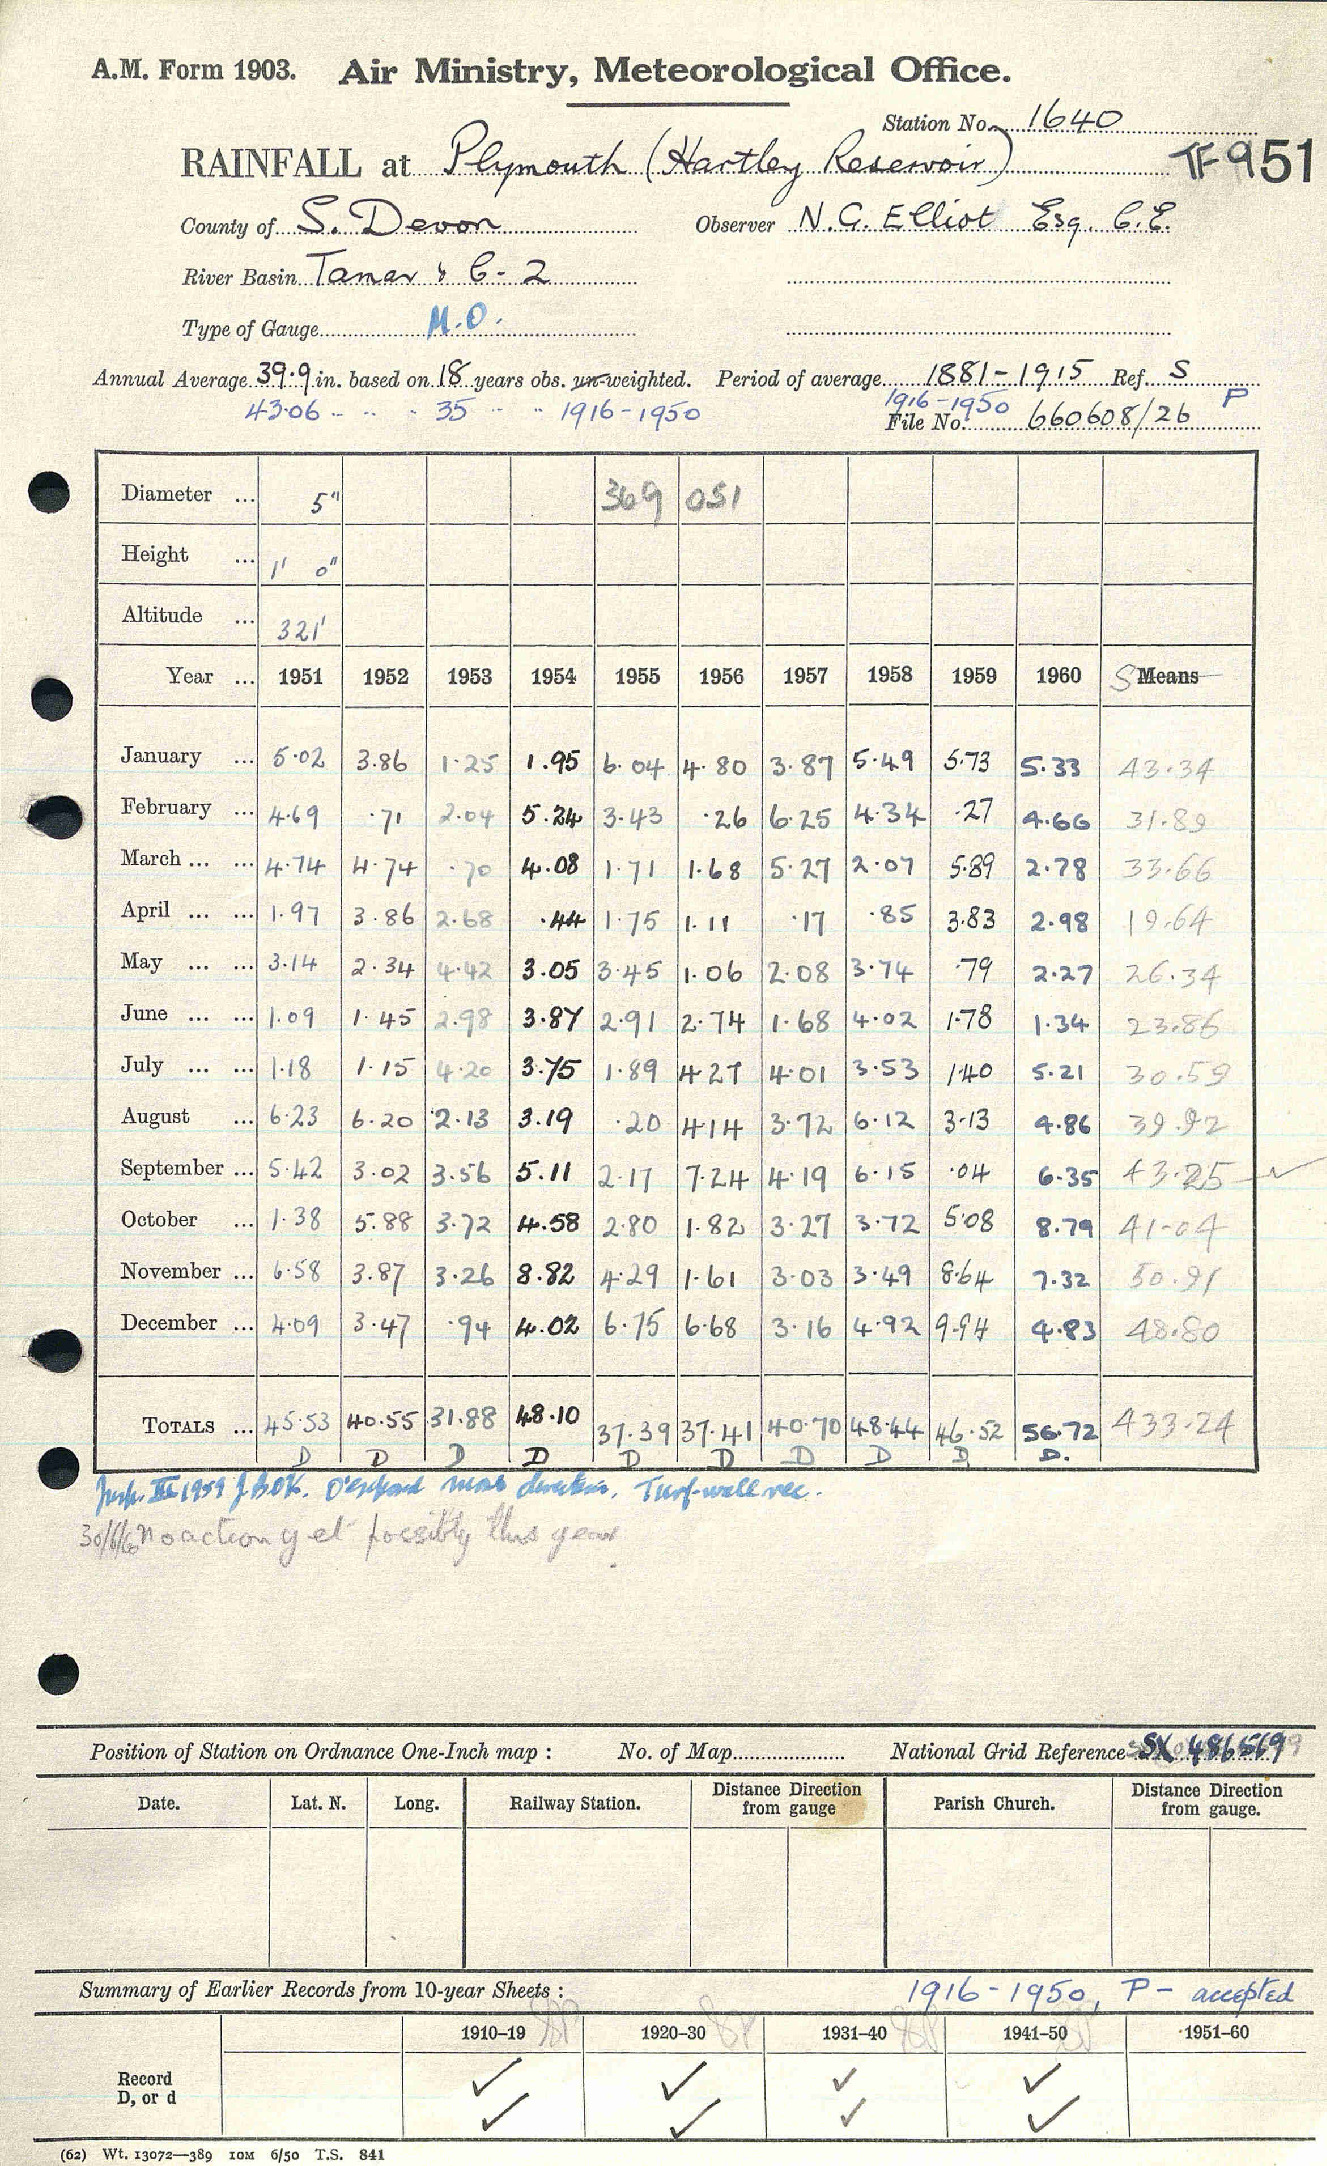 A.M. Form 1903. Air Ministry, Meteorological Office.
Station No. 1640
RAINFALL at Plymouth (Hartley Reservoir) TF 951
County of S. Devon Observer N.G. Elliot Esq. C.E.
River Basin Tamar & C-2
Type of Gauge M.O.
Annual Average 39.9 in. based on 18 years obs. un-weighted. Period of average 1881-1915 Ref. S
43.06 " " " 35 " " 1916-1950 1916-1950 P
File No. 660608/26
Diameter ... 5" 369 051
Height ... 1' 0"
Altitude ... 321'
Year ... 1951 1952 1953 1954 1955 1956 1957 1958 1959 1960 S Means
January ... 5.02 3.86 1.25 1.95 6.04 4.80 3.87 5.49 5.73 5.33 43.34
February ... 4.69 .71 2.04 5.24 3.43 .26 6.25 4.34 .27 4.66 31.89
March ... ... 4.74 4.74 .70 4.08 1.71 1.68 5.27 2.07 5.89 2.78 33.66
April ... ... 1.97 3.86 2.68 .44 1.75 1.11 .17 .85 3.83 2.98 19.64
May ... ... 3.14 2.34 4.42 3.05 3.45 1.06 2.08 3.74 .79 2.27 26.34
June ... ... 1.09 1.45 2.98 3.87 2.91 2.74 1.68 4.02 1.78 1.34 23.86
July ... ... 1.18 1.15 4.20 3.75 1.89 4.27 4.01 3.53 1.40 5.21 30.59
August ... 6.23 6.20 2.13 3.19 .20 4.14 3.72 6.12 3.13 4.86 39.92
September ... 5.42 3.02 3.56 5.11 2.17 7.24 4.19 6.15 .04 6.35 43.25
October ... 1.38 5.88 3.72 4.58 2.80 1.82 3.27 3.72 5.08 8.79 41.04
November ... 6.58 3.87 3.26 8.82 4.29 1.61 3.03 3.49 8.64 7.32 50.91
December ... 4.09 3.47 .94 4.02 6.75 6.68 3.16 4.92 9.94 4.83 48.80
TOTALS ... 45.53 40.55 31.88 48.10 37.39 37.41 40.70 48.44 46.52 56.72 433.24
D D D D D D D D D D.
Insp. III 1959 J.B. OK. O'exposed most directions. Turf-wall rec.
30/6/60 No action yet possibly this year
Position of Station on Ordnance One-Inch map : No. of Map National Grid Reference SX 486569
Date. Lat. N. Long. Railway Station. Distance Direction from gauge Parish Church. Distance Direction from gauge.
Summary of Earlier Records from 10-year Sheets : 1916-1950, P - accepted
1910–19 1920–30 1931–40 1941–50 1951–60
Record
D, or d
(62) Wt. 13072—389 10M 6/50 T.S. 841